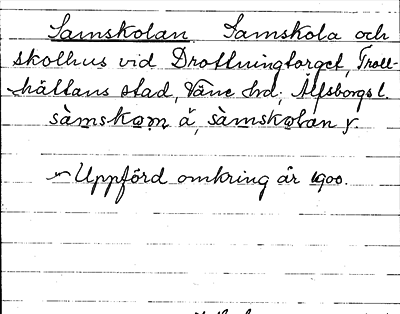 Samskolan Samskola och
skolhus vid Drottningtorget, Troll-
hättans stad, Väne hd, Älfsborgs l.
sàmskọm ä, sàmskọlan y.
Uppförd omkring år 1900.